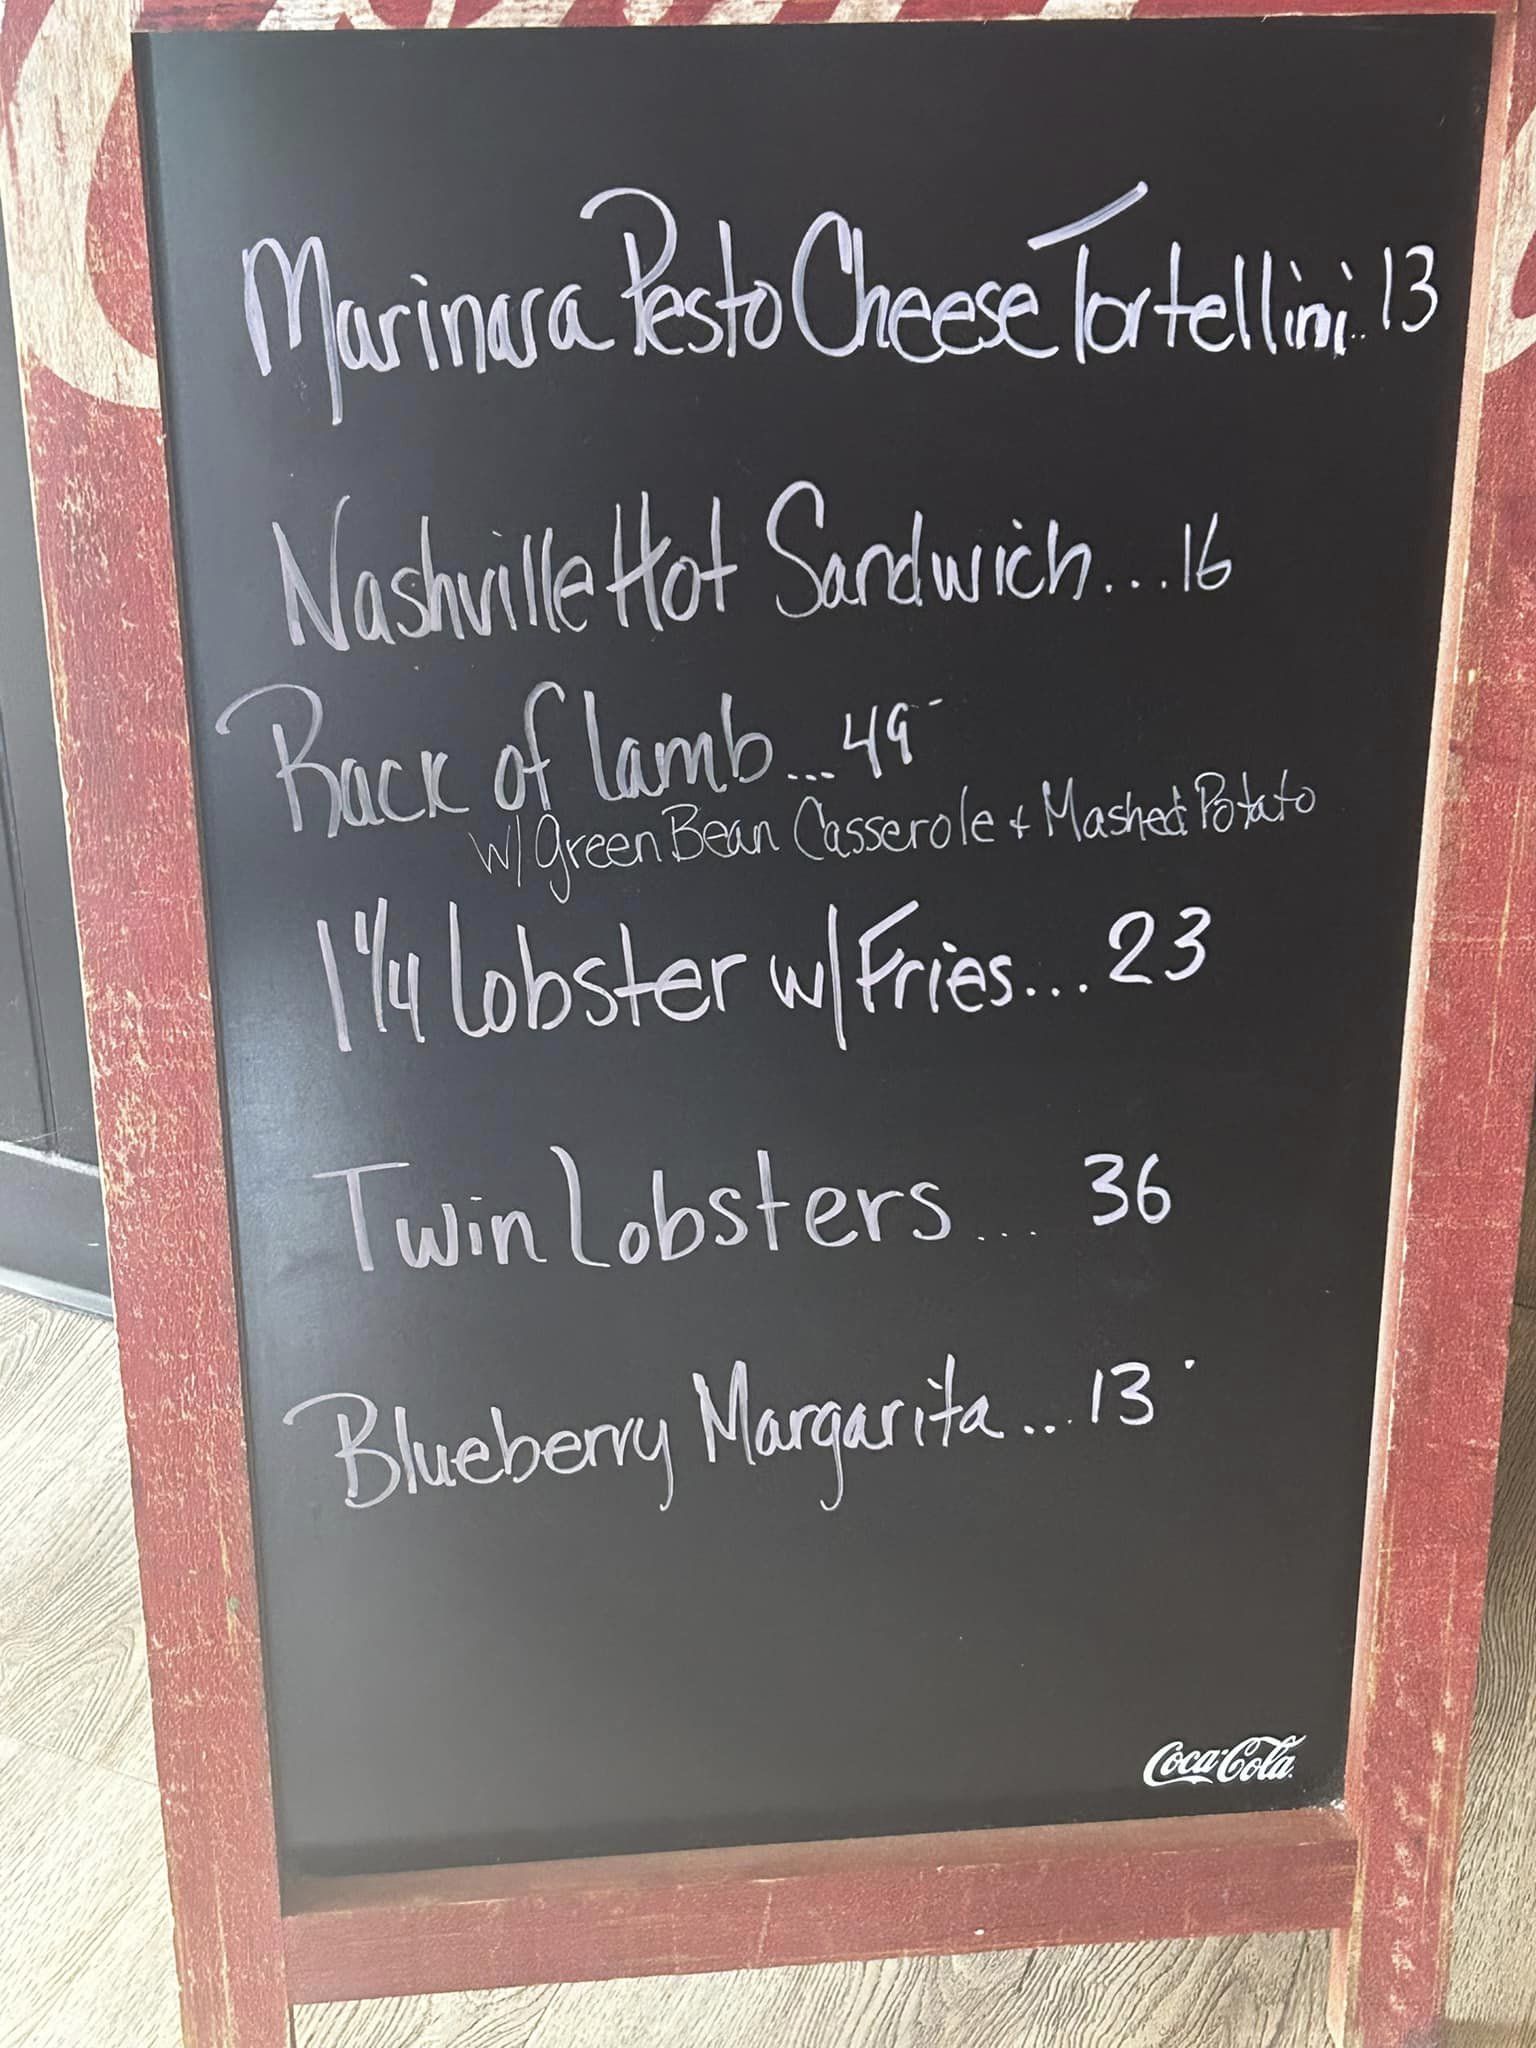 Marinara Pesto Cheese Tortellini..13
Nashville Hot Sandwich...16
Rack of lamb...49
w/ green Bean Casserole + Mashed Potato
1 1/4 Lobster w/ Fries...23
Twin Lobsters... 36
Blueberry Margarita...13
Coca-Cola